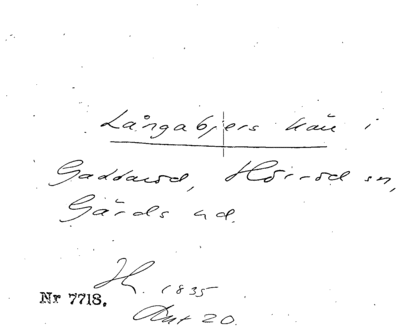 Långabjers kär i
Gaddaröd, Hörröd sn,
Gärds hd.
H. 1835
Nr 7718.
Akt 20